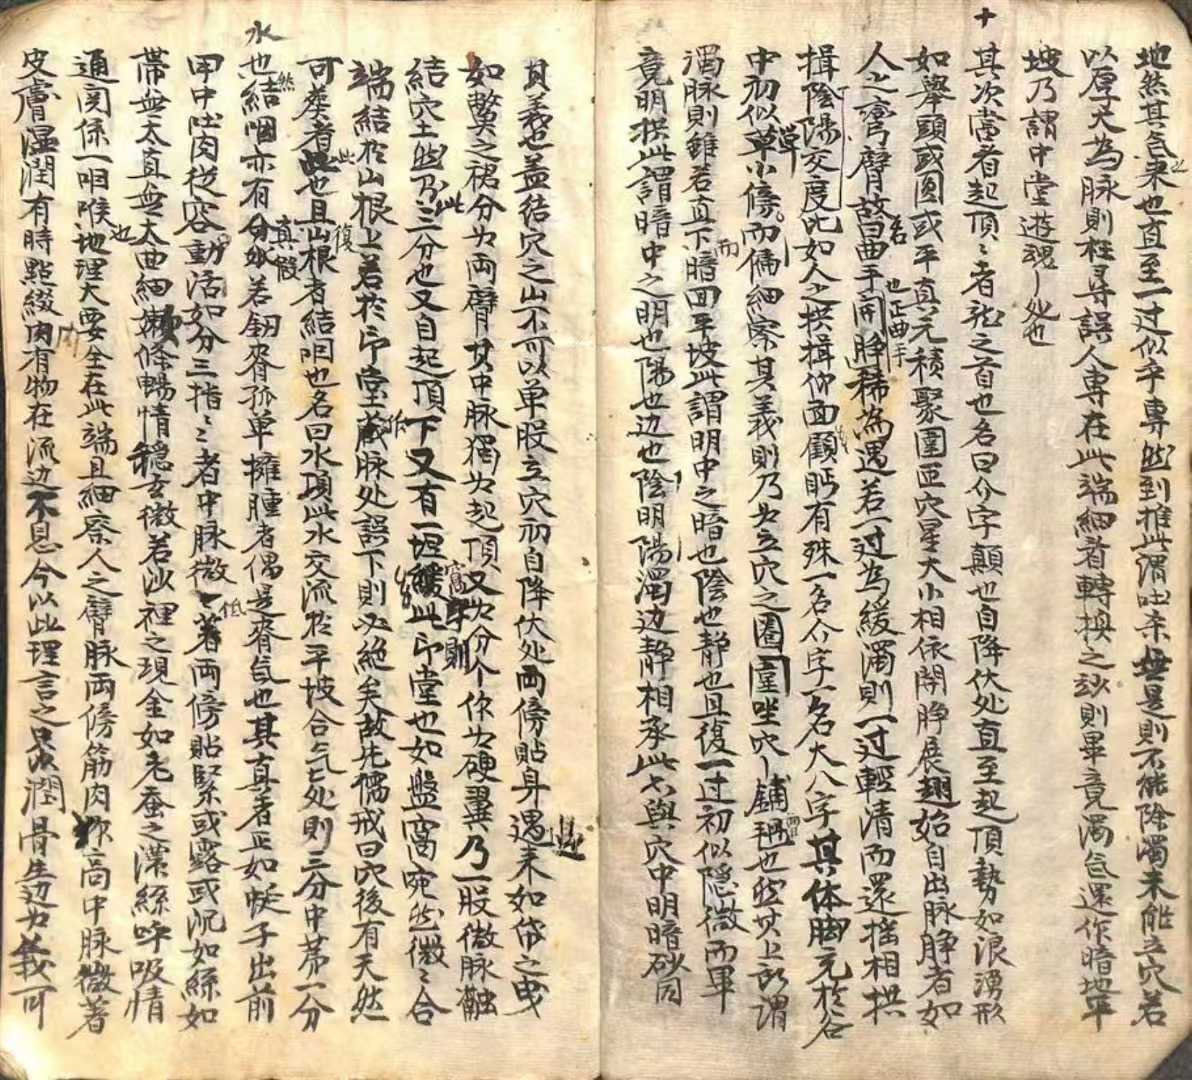 十
地然其氣來也直至一过似乎專然到推此謂吐柔無是則不能除濁未能立穴若
以厚大為脉則枉尋誤人專在此端細看轉換之砂則畢竟濁氣還作暗地平
坡乃謂中堂遊魂之处也
其次當看起頂〻者龙之首也名曰介字顛也自降伏处直至起頂勢如浪湧形
如舉頭或圓或平真元積聚圍匝穴星大小相依開睁展翅始自出脉睁者如
人之弯臂故名曰曲手開睁稀為遇若一过為緩濁則一过輕清而還摇相拱
也正曲手
揖陰陽交度比如人之拱揖仰面顧眄有殊一名介字一名大八字其体脚元於谷
中初似草小傍而偏細察其義則乃为立穴之圈圍坐穴之鋪裀也然其上所謂
濁脉則雖若直下暗回平坡此謂明中之暗也陰也静也且復一过初似隐微而畢
竟明拱此謂暗中之明也陽也边也陰明陽濁边静相承此与與穴中明暗砂同
其義也盖結穴之山不可以单股立穴初自降伏处両傍貼身過来如帒之曳
如鷩之裙分为両臂其中脉獨为起頂又为分个作为硬翼乃一股微脉融
結穴土然乃此三分也又自起頂下又有一堆緩此印堂也如盤窩宛然微〻合
端結於山根上若於印堂藏脉处誤下則必絶矣故先儒戒曰穴後有天然
可葬者此也且山根者結咽也名曰水項此水交流於平坡合气亡处則三分中苐一分
水也然結咽亦有真假分水若釰脊孤单擁腫者偶是脊氣也其真者正如蜓子出前
甲中吐肉從容動活如分三指〻者中脉微〻低著両傍貼緊或露或沉如絲如
帶無太直無太曲細嫩條暢情穏玄微若沙裡之現金如老蚕之漾絲呼吸情
通関係一咽喉也地理大要全在此端且細察人之臂脉両傍筋肉弥高中脉微著
皮膚温潤有時點綴肉有物在流边不息今以此理言之只以潤骨生边为義可